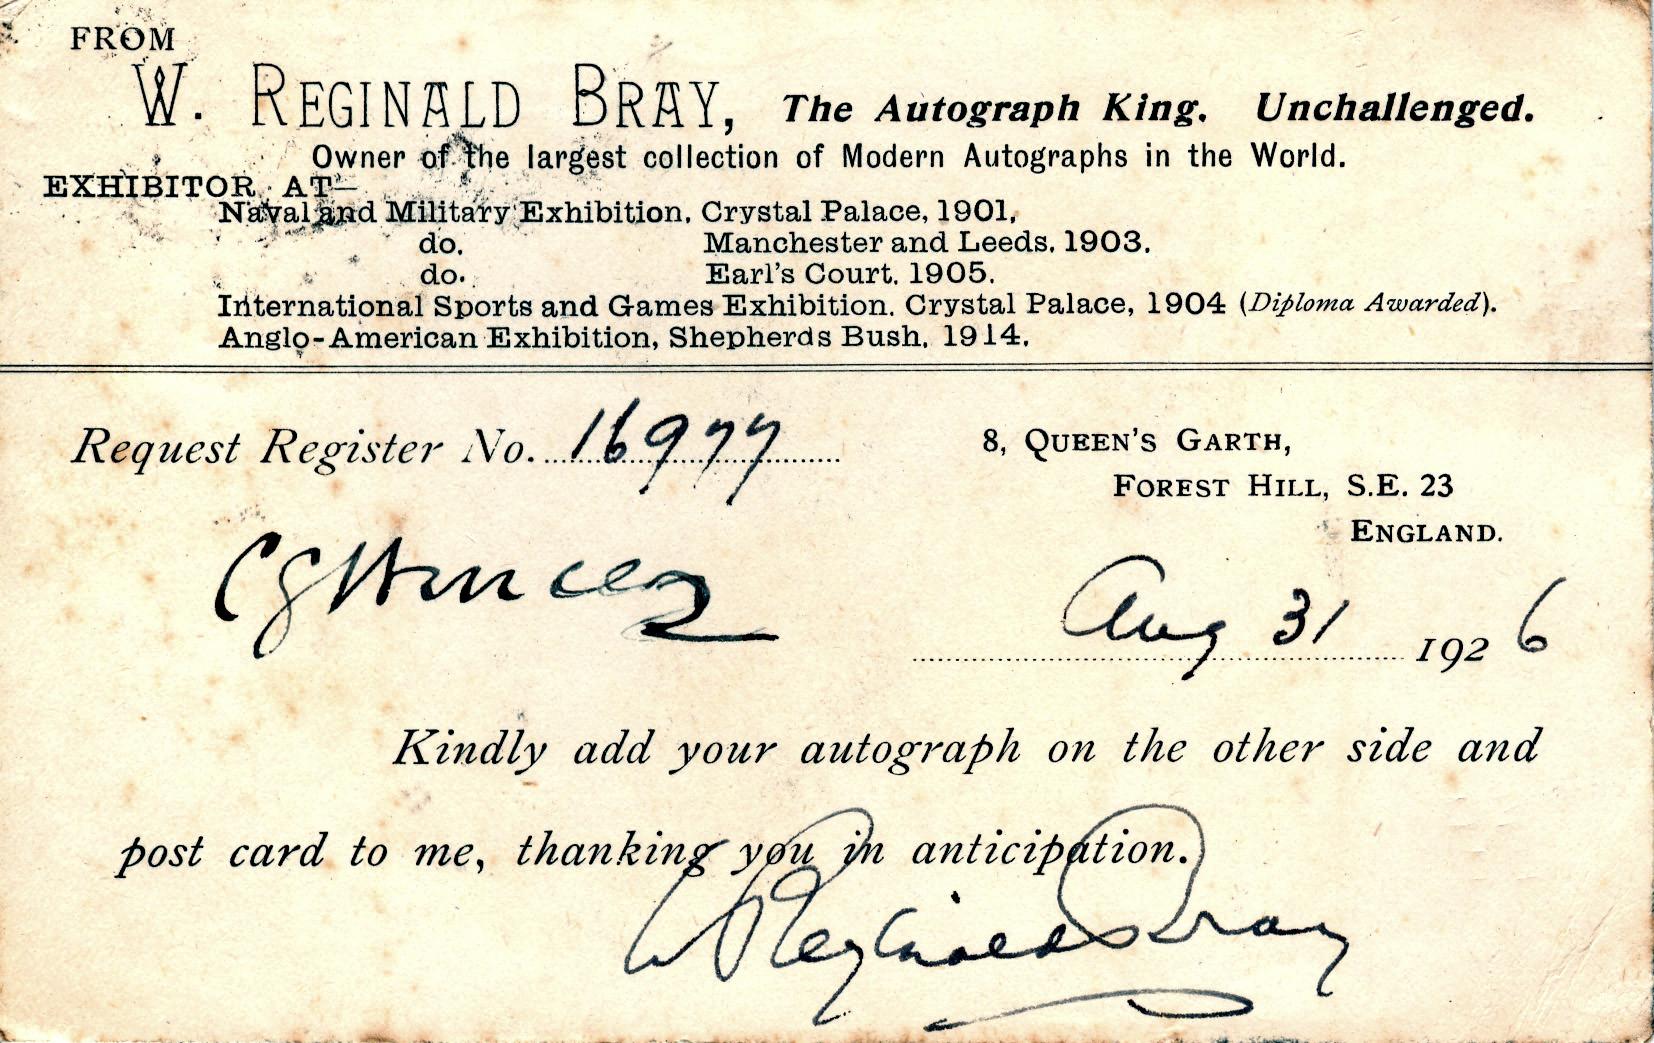 FROM
W. REGINALD BRAY, The Autograph King. Unchallenged.
Owner of the largest collection of Modern Autographs in the World.
EXHIBITOR AT—
Naval and Military Exhibition, Crystal Palace, 1901,
do. Manchester and Leeds, 1903.
do. Earl's Court, 1905.
International Sports and Games Exhibition, Crystal Palace, 1904 (Diploma Awarded).
Anglo-American Exhibition, Shepherds Bush, 1914.
Request Register No. 16977
8, QUEEN'S GARTH,
FOREST HILL, S.E. 23
ENGLAND.
Aug 31 1926
Kindly add your autograph on the other side and
post card to me, thanking you in anticipation.
W Reginald Bray